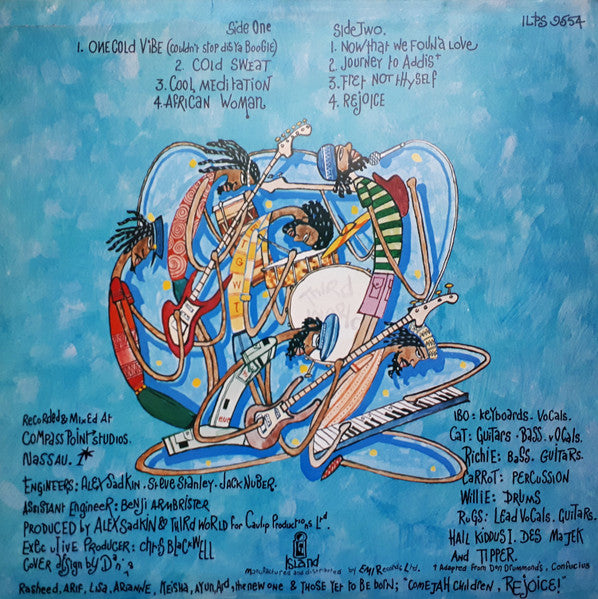 ILPS 9554
Side One
1. ONE COLD VIBE (couldn't stop dis ya Boogie)
2. COLD SWEAT
3. Cool Meditation
4. African Woman.
Side Two.
1. Now that we Found Love
2. Journey to Addis†
3. Fret Not thyself
4. Rejoice
Third World
Recorded & Mixed At
Compass Point Studios.
Nassau.
Engineers: Alex Sadkin. Steve Stanley. Jack Nuber.
Assistant Engineer: Benji Armbrister
Produced by Alex Sadkin & Third World for Cavlip Productions Ltd.
Executive Producer: Chris Blackwell
Cover design by
IBO: Keyboards. Vocals.
Cat: Guitars. Bass. Vocals.
Richie: Bass. Guitars.
Carrot: Percussion
Willie: Drums
Rugs: Lead Vocals. Guitars.
Hail Kiddus I. Des Majek
And Tipper.
Island
Manufactured and distributed by EMI Records Ltd.
† Adapted from Don Drummond's, Confucius
Rasheed, Arif, Lisa, Arianne, Keisha, Ayun, Ard, the new one & those yet to be born; "Come JAH Children, Rejoice!"